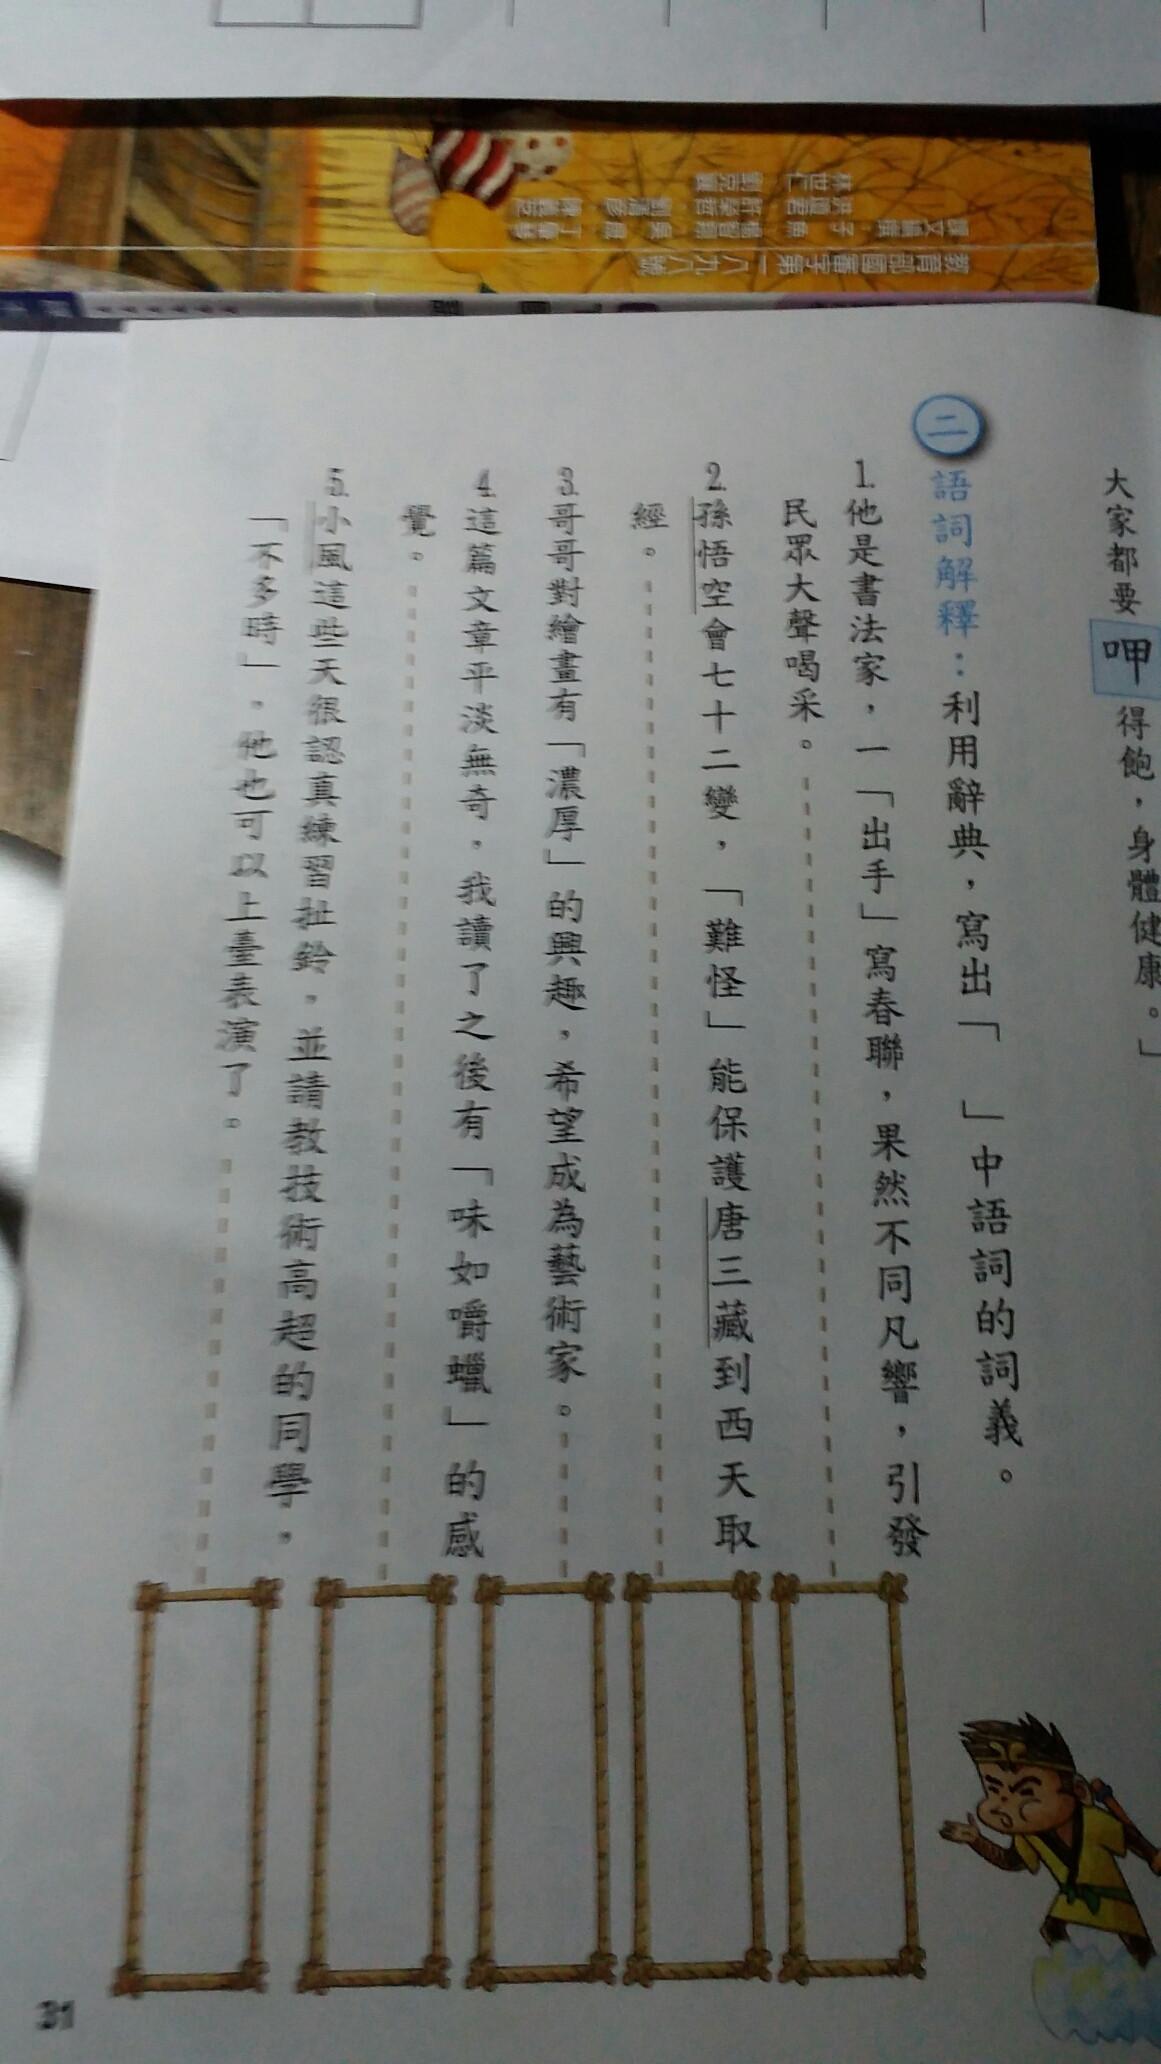 大家都要呷得飽，身體健康。」
二 語詞解釋：利用辭典，寫出「　」中語詞的詞義。
1.他是書法家，一「出手」寫春聯，果然不同凡響，引發
民眾大聲喝采。
2.孫悟空會七十二變，「難怪」能保護唐三藏到西天取
經。
3.哥哥對繪畫有「濃厚」的興趣，希望成為藝術家。
4.這篇文章平淡無奇，我讀了之後有「味如嚼蠟」的感
覺。
5.小風這些天很認真練習扯鈴，並請教技術高超的同學，
「不多時」，他也可以上臺表演了。
31
教育部國審字第一八九八號